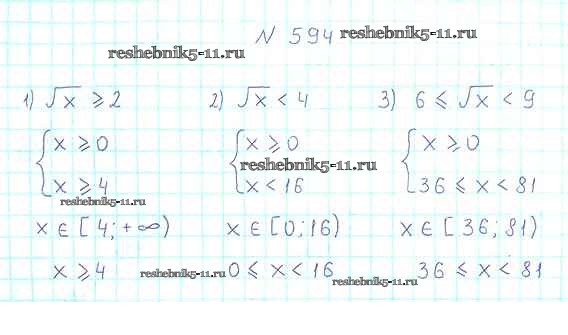 N 594 reshebnik5-11.ru
reshebnik5-11.ru
1) √x ≥ 2
{ x ≥ 0
x ≥ 4
reshebnik5-11.ru
x ∈ [4; +∞)
x ≥ 4
2) √x < 4
{ x ≥ 0
reshebnik5-11.ru
x < 16
x ∈ [0; 16)
reshebnik5-11.ru 0 ≤ x < 16
3) 6 ≤ √x < 9
{ x ≥ 0
36 ≤ x < 81
x ∈ [36; 81)
36 ≤ x < 81
reshebnik5-11.ru